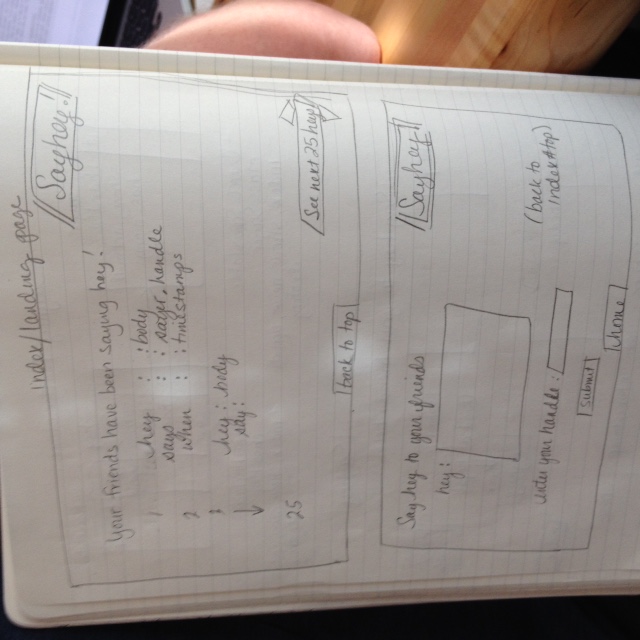 index/landing page
Sayhey!
Your friends have been saying hey!
1 hey : :body
says : : sayer.handle
2 when : :timestamps
3 hey : body
say:
25
See next 25 heys
back to top
Say hey to your friends
Sayhey!
hey:
enter your handle:
(back to
index#top)
submit
home